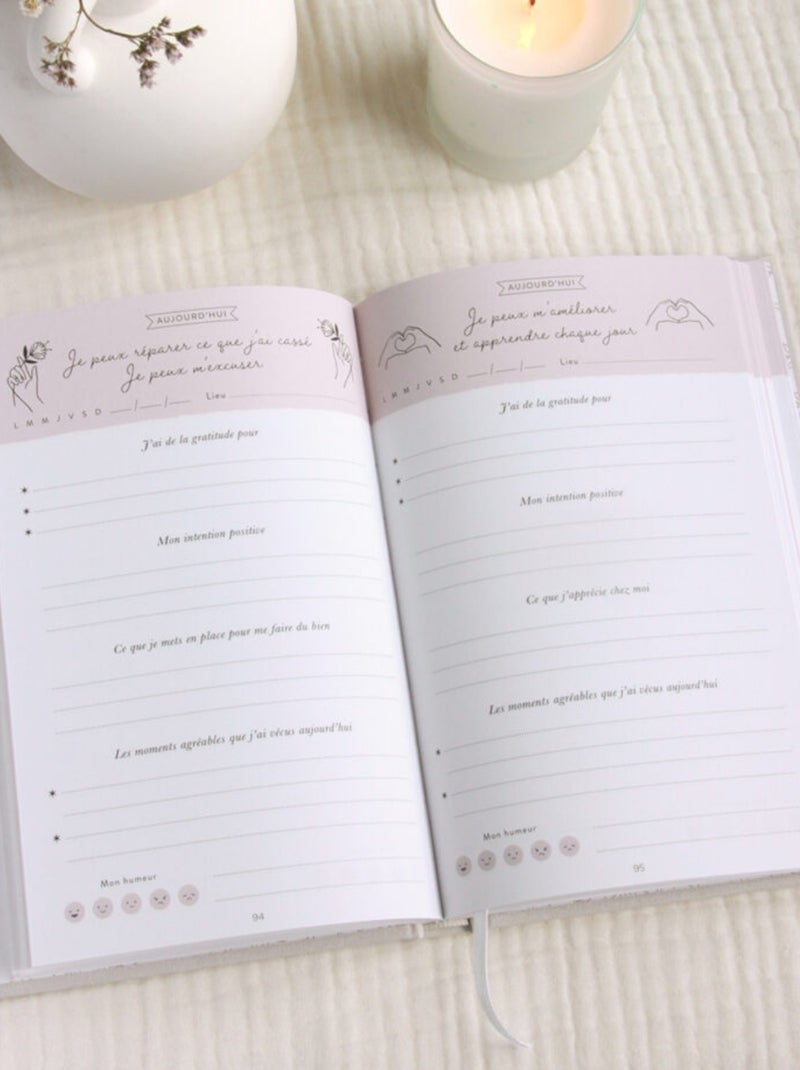 AUJOURD'HUI
Je peux réparer ce que j'ai cassé
Je peux m'excuser
L M M J V S D __/__/__ Lieu
J'ai de la gratitude pour
Mon intention positive
Ce que je mets en place pour me faire du bien
Les moments agréables que j'ai vécus aujourd'hui
Mon humeur
94
AUJOURD'HUI
Je peux m'améliorer
et apprendre chaque jour
L M M J V S D __/__/__ Lieu
J'ai de la gratitude pour
Mon intention positive
Ce que j'apprécie chez moi
Les moments agréables que j'ai vécus aujourd'hui
Mon humeur
95